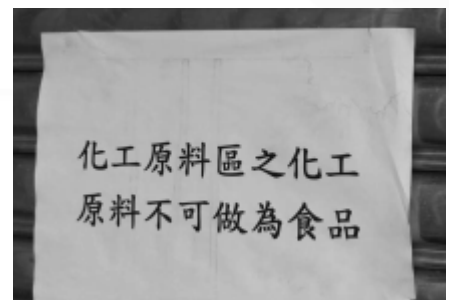 化工原料區之化工
原料不可做為食品